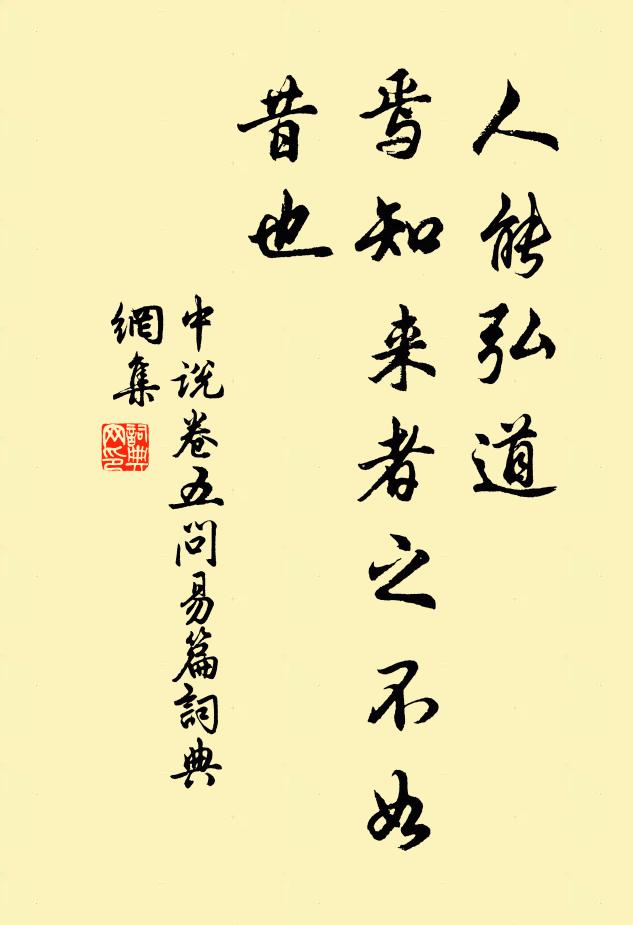 人能弘道
焉知来者之不如
昔也
中说卷五问易篇詞典
網集
詞典
网印